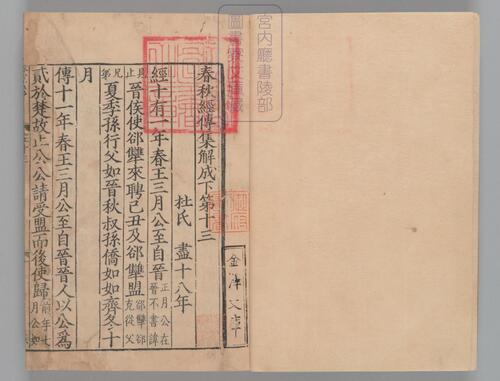 春秋經傳集解成下第十三
杜氏 盡十八年
經十有一年春王三月公至自晉正月公在晉不書諱
見止晉侯使郤犨來聘己丑及郤犨盟郤犨郤克從父
兄弟夏季孫行父如晉秋叔孫僑如如齊冬十
月
傳十一年春王三月公至自晉晉人以公爲
貳於楚故止公公請受盟而後使歸前年七月公如
宮内廳書陵部
圖書寮文庫
金澤文庫